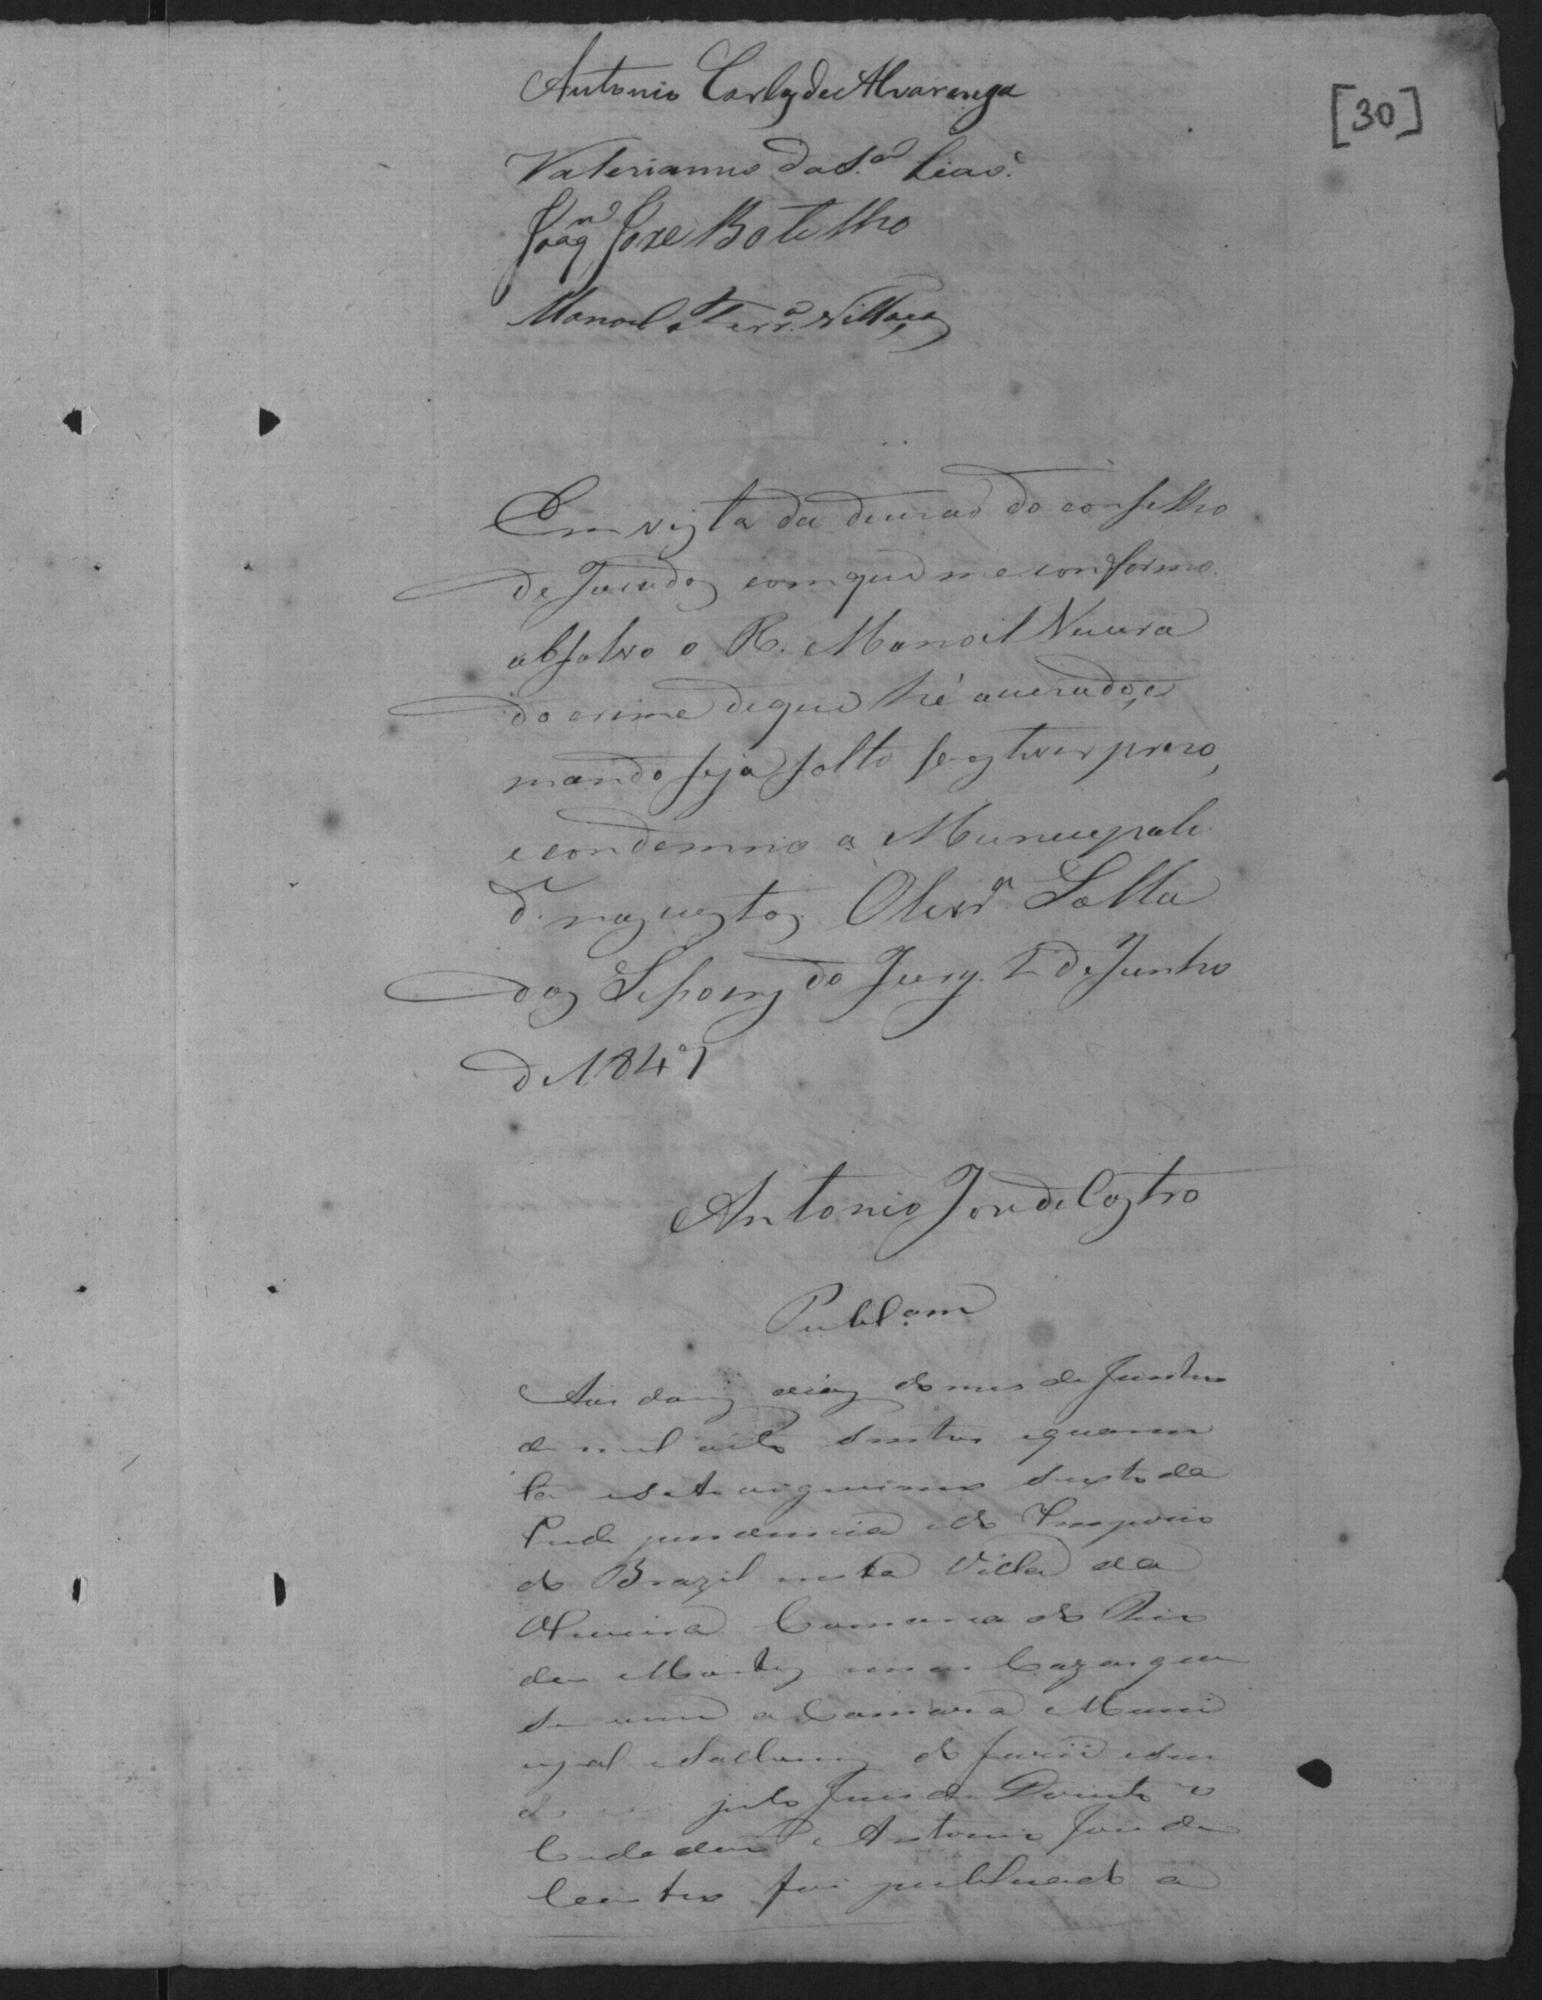 Antonio Carlos de Alvarenga
[30]
Valerianno da S.ª Leão.
Joaqm Jose Botelho
Manoel Ferr.ª Villaça
Em vista da decisão do conselho
de Jurados com que me conformo
absolvo o R. Manoel Vieira
do crime de que hé accusado, e
mando seja solto se estiver prezo,
e condemno a Municipali
de. nas custas. Olivrª Salla
das Sessoens do Jury. 2 de Junho
de 1847
Antonio Jose de Castro
Publ.am
Aos dois dias do mes de Junho
de mil oito sentos e quaren
ta e sete vigesimo sexto da
Inde pendencia e do Imperio
do Brazil nesta Villa da
Oliveira Comarca do Rio
das Mortes em as Cazas que
serve a Camara Muni
cipal e Sallas do Jurii e sen
do pelo Juis de Direito o
Cidadão Antonio Jose de
Castro foi publicado a